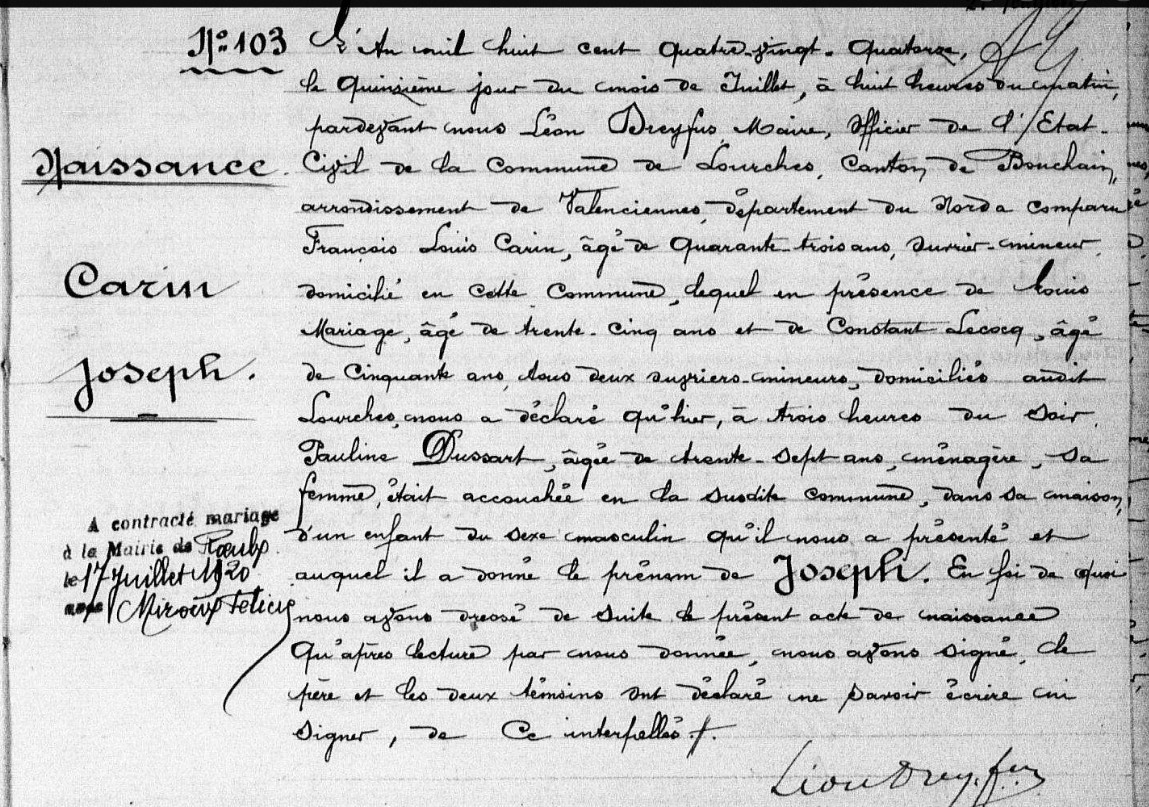 N° 103
Naissance.
Carin
Joseph.
A contracté mariage
à la Mairie de Rœulx
le 17 Juillet 1920
avec Miroux Félicie
L'An mil huit cent quatre-vingt-quatorze,
le quinzième jour du mois de Juillet, à huit heures du matin,
pardevant nous Léon Dreyfus Maire, Officier de l'Etat-
Civil de la Commune de Lourches, Canton de Bouchain,
arrondissement de Valenciennes, département du Nord a comparu
François Louis Carin, âgé de quarante-trois ans, ouvrier-mineur,
domicilié en cette commune, lequel en présence de Louis
Mariage, âgé de trente-cinq ans et de Constant Lecocq, âgé
de cinquante ans, tous deux ouvriers-mineurs, domiciliés audit
Lourches, nous a déclaré qu'hier, à trois heures du soir,
Pauline Dussart, âgée de trente-sept ans, ménagère, sa
femme, était accouchée en la susdite commune, dans sa maison,
d'un enfant du sexe masculin qu'il nous a présenté et
auquel il a donné le prénom de Joseph. En foi de quoi
nous avons dressé de suite le présent acte de naissance
qu'après lecture par nous donnée, nous avons signé, le
père et les deux témoins ont déclaré ne savoir écrire ni
signer, de ce interpellés.
Léon Dreyfus